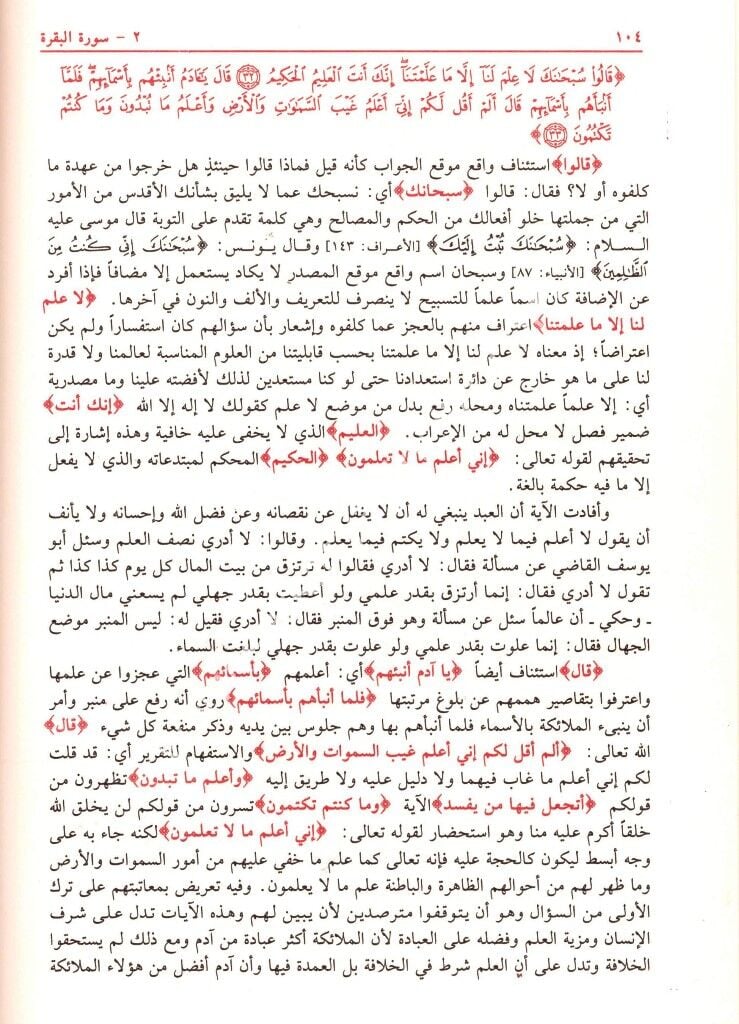 ١٠٤ ٢ - سورة البقرة
﴿قَالُوا سُبْحَانَكَ لَا عِلْمَ لَنَا إِلَّا مَا عَلَّمْتَنَا إِنَّكَ أَنْتَ الْعَلِيمُ الْحَكِيمُ ﴿٣٢﴾ قَالَ يَا آدَمُ أَنْبِئْهُم بِأَسْمَائِهِمْ فَلَمَّا
أَنْبَأَهُم بِأَسْمَائِهِمْ قَالَ أَلَمْ أَقُل لَكُمْ إِنِّي أَعْلَمُ غَيْبَ السَّمَوَاتِ وَالْأَرْضِ وَأَعْلَمُ مَا تُبْدُونَ وَمَا كُنتُمْ
تَكْتُمُونَ ﴿٣٣﴾﴾
﴿قالوا﴾ استئناف واقع موقع الجواب كأنه قيل فماذا قالوا حينئذٍ هل خرجوا من عهدة ما
كلفوه أو لا؟ فقال: قالوا ﴿سبحانك﴾ أي: نسبحك عما لا يليق بشأنك الأقدس من الأمور
التي من جملتها خلو أفعالك من الحكم والمصالح وهي كلمة تقدم على التوبة قال موسى عليه
السلام: ﴿سُبْحَانَكَ تُبْتُ إِلَيْكَ﴾ [الأعراف: ١٤٣] وقال يونس: ﴿سُبْحَانَكَ إِنِّي كُنتُ مِنَ
الظَّالِمِينَ﴾ [الأنبياء: ٨٧] وسبحان اسم واقع موقع المصدر لا يكاد يستعمل إلا مضافاً فإذا أفرد
عن الإضافة كان اسماً علماً للتسبيح لا ينصرف للتعريف والألف والنون في آخرها. ﴿لا علم
لنا إلا ما علمتنا﴾ اعتراف منهم بالعجز عما كلفوه وإشعار بأن سؤالهم كان استفساراً ولم يكن
اعتراضاً؛ إذ معناه لا علم لنا إلا ما علمتنا بحسب قابليتنا من العلوم المناسبة لعالمنا ولا قدرة
لنا على ما هو خارج عن دائرة استعدادنا حتى لو كنا مستعدين لذلك لأفضته علينا وما مصدرية
أي: إلا علماً علمتناه ومحله رفع بدل من موضع لا علم كقولك لا إله إلا الله ﴿إنك أنت﴾
ضمير فصل لا محل له من الإعراب. ﴿العليم﴾ الذي لا يخفى عليه خافية وهذه إشارة إلى
تحقيقهم لقوله تعالى: ﴿إني أعلم ما لا تعلمون﴾ ﴿الحكيم﴾ المحكم لمبتدعاته والذي لا يفعل
إلا ما فيه حكمة بالغة.
وأفادت الآية أن العبد ينبغي له أن لا يغفل عن نقصانه وعن فضل الله وإحسانه ولا يأنف
أن يقول لا أعلم فيما لا يعلم ولا يكتم فيما يعلم. وقالوا: لا أدري نصف العلم وسئل أبو
يوسف القاضي عن مسألة فقال: لا أدري فقالوا له ترتزق من بيت المال كل يوم كذا كذا ثم
تقول لا أدري فقال: إنما أرتزق بقدر علمي ولو أعطيت بقدر جهلي لم يسعني مال الدنيا
ـ وحكي ـ أن عالماً سئل عن مسألة وهو فوق المنبر فقال: لا أدري فقيل له: ليس المنبر موضع
الجهال فقال: إنما علوت بقدر علمي ولو علوت بقدر جهلي لبلغت السماء.
﴿قال﴾ استئناف أيضاً ﴿يا آدم أنبئهم﴾ أي: أعلمهم ﴿بأسمائهم﴾ التي عجزوا عن علمها
واعترفوا بتقاصير هممهم عن بلوغ مرتبتها ﴿فلما أنبأهم بأسمائهم﴾ روي أنه رفع على منبر وأمر
أن ينبىء الملائكة بالأسماء فلما أنبأهم بها وهم جلوس بين يديه وذكر منفعة كل شيء ﴿قال﴾
الله تعالى: ﴿ألم أقل لكم إني أعلم غيب السموات والأرض﴾ والاستفهام للتقرير أي: قد قلت
لكم إني أعلم ما غاب فيهما ولا دليل عليه ولا طريق إليه ﴿وأعلم ما تبدون﴾ تظهرون من
قولكم ﴿أتجعل فيها من يفسد﴾ الآية ﴿وما كنتم تكتمون﴾ تسرون من قولكم لن يخلق الله
خلقاً أكرم عليه منا وهو استحضار لقوله تعالى: ﴿إني أعلم ما لا تعلمون﴾ لكنه جاء به على
وجه أبسط ليكون كالحجة عليه فإنه تعالى كما علم ما خفي عليهم من أمور السموات والأرض
وما ظهر لهم من أحوالهم الظاهرة والباطنة علم ما لا يعلمون. وفيه تعريض بمعاتبتهم على ترك
الأولى من السؤال وهو أن يتوقفوا مترصدين لأن يبين لهم وهذه الآيات تدل على شرف
الإنسان ومزية العلم وفضله على العبادة لأن الملائكة أكثر عبادة من آدم ومع ذلك لم يستحقوا
الخلافة وتدل على أن العلم شرط في الخلافة بل العمدة فيها وأن آدم أفضل من هؤلاء الملائكة